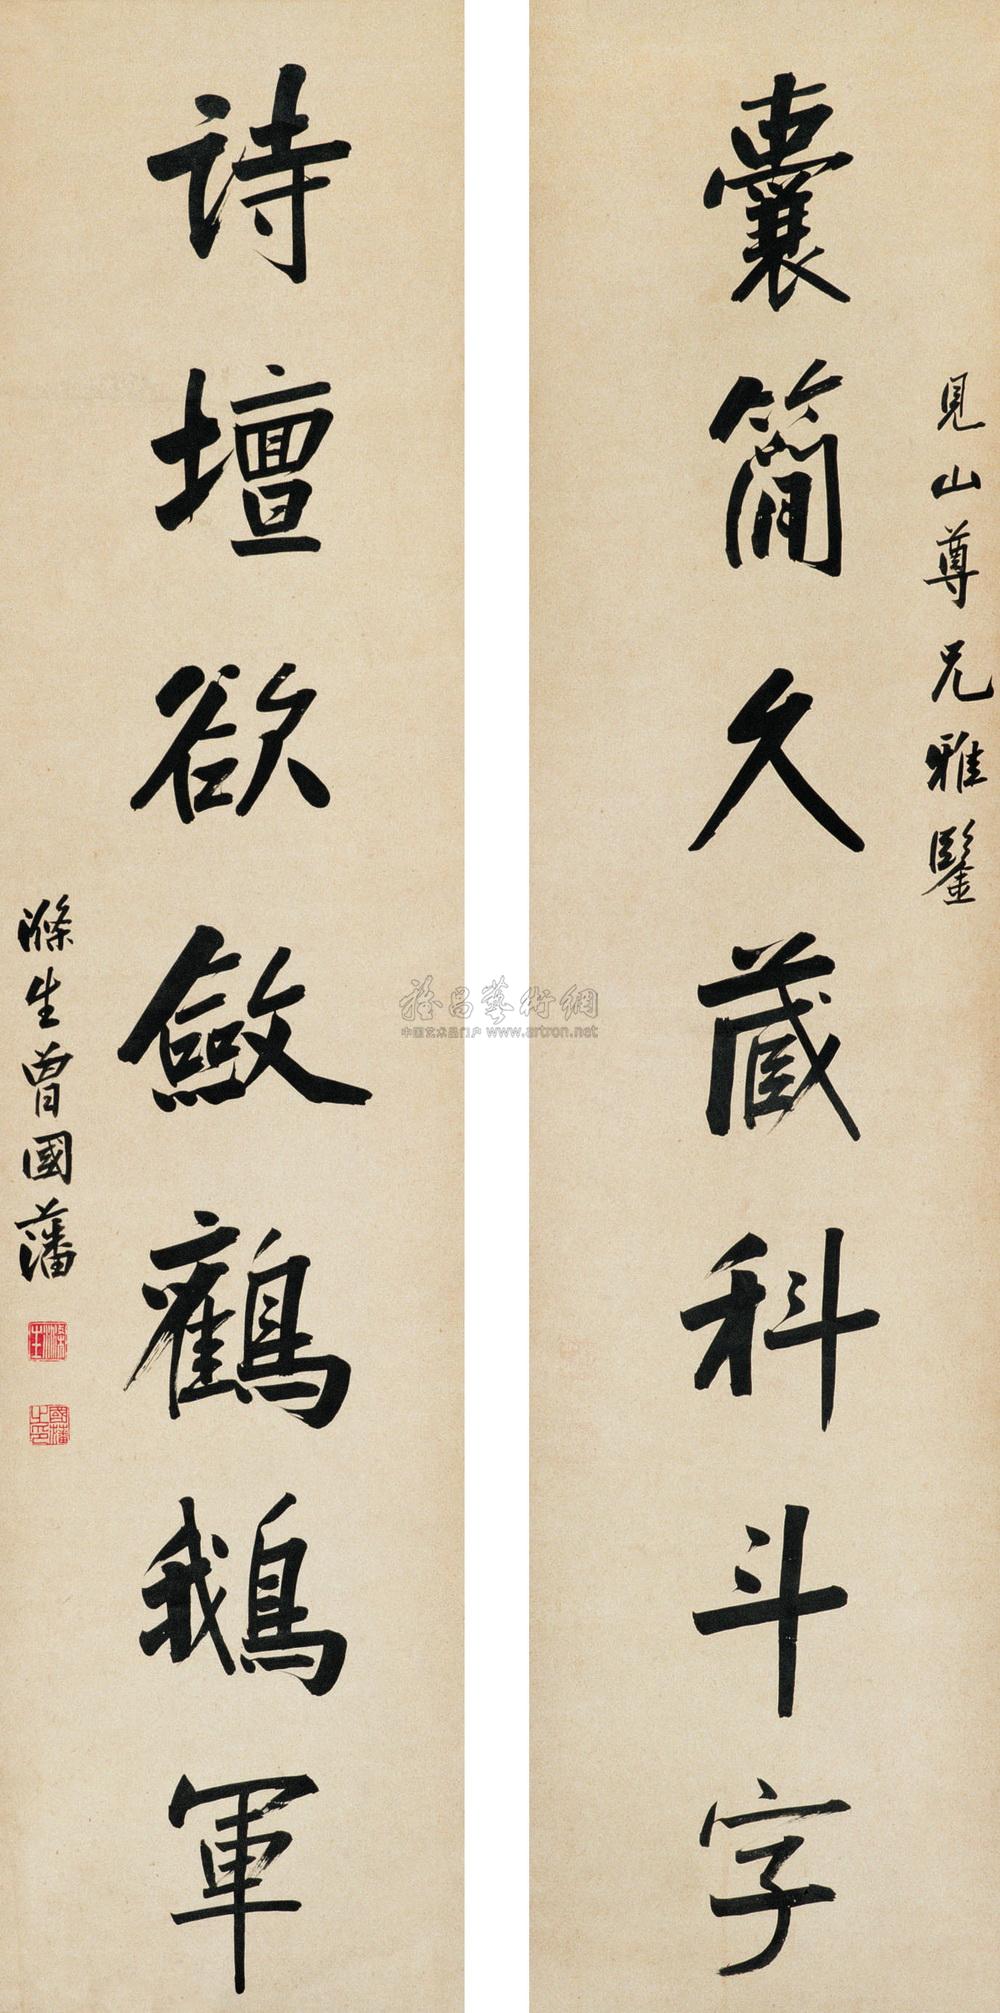 見山尊兄雅鑒
囊簡久藏科斗字
詩壇欲斂鸛鵝軍
滌生曾國藩
滌生
國藩之印
雅昌藝術網
中国艺术品门户 www.artron.net